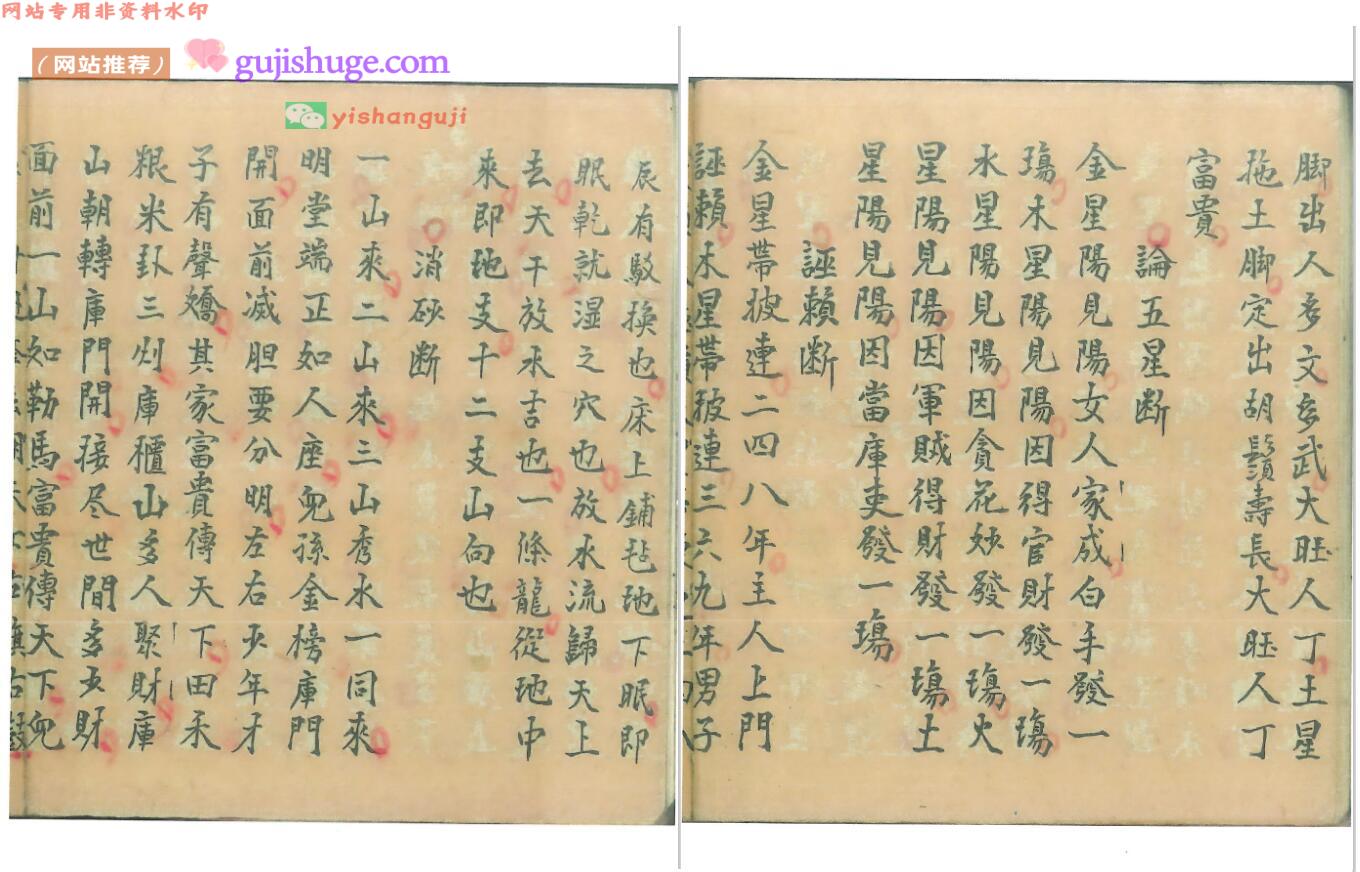 网站专用非资料水印
（网站推荐）
gujishuge.com
yishanguji
脚出人多文多武大旺人丁土星
拖土脚定出胡鬚壽長大旺人丁
富貴
論五星断
金星陽見陽女人家成白手發一
瑒木星陽見陽因得官財發一瑒
水星陽見陽因貪花妙發一瑒火
星陽見陽因軍賊得財發一瑒土
星陽見陽因當庫吏發一瑒
誣賴断
金星帯披連二四八年主人上門
誣賴木星帯披連三六九年男子
辰有駁換也床上鋪毡地下眠即
眠乾就湿之穴也放水流歸天上
去天干放水吉也一條龍從地中
來即地支十二支山向也
消砂断
一山來二山來三山秀水一同來
明堂端正如人座兜孫金榜庫門
開面前减胆要分明左右少年才
子有聲嬌其家富貴傳天下田禾
粮米卦三刘庫櫃山多人聚財庫
山朝轉庫門開接尽世間多女財
面前一山如勒馬富貴傳天下兜